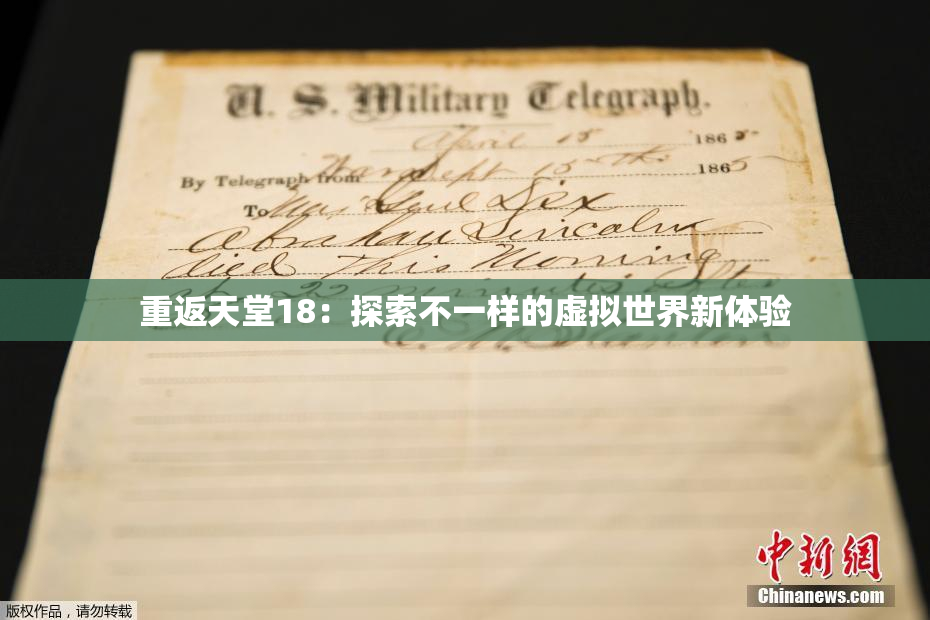 U. S. Military Telegraph.
April 15 1865
By Telegraph from Wash Sept 15th 1865
To Maj Genl Dix
Abraham Lincoln
died This Morning
at 22 minutes after
重返天堂18：探索不一样的虚拟世界新体验
E. M. Stanton
中新网
Chinanews.com
版权作品，请勿转载